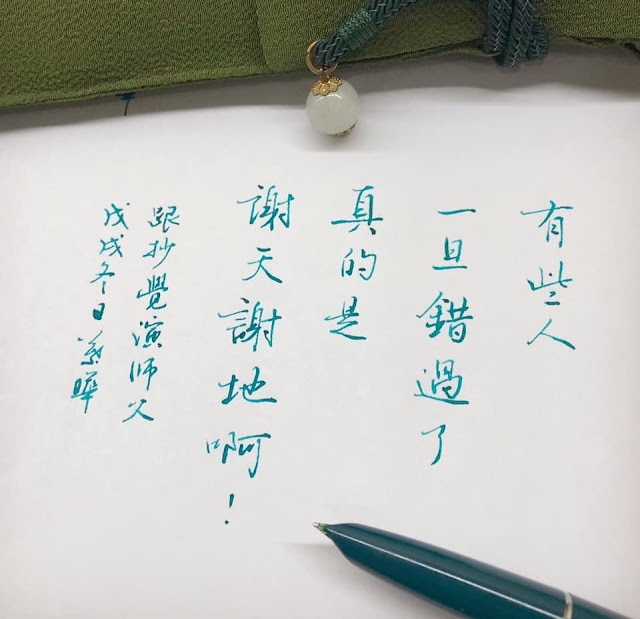 有些人
一旦錯過了
真的是
謝天謝地啊！
跟抄覺演師父
戊戌冬日